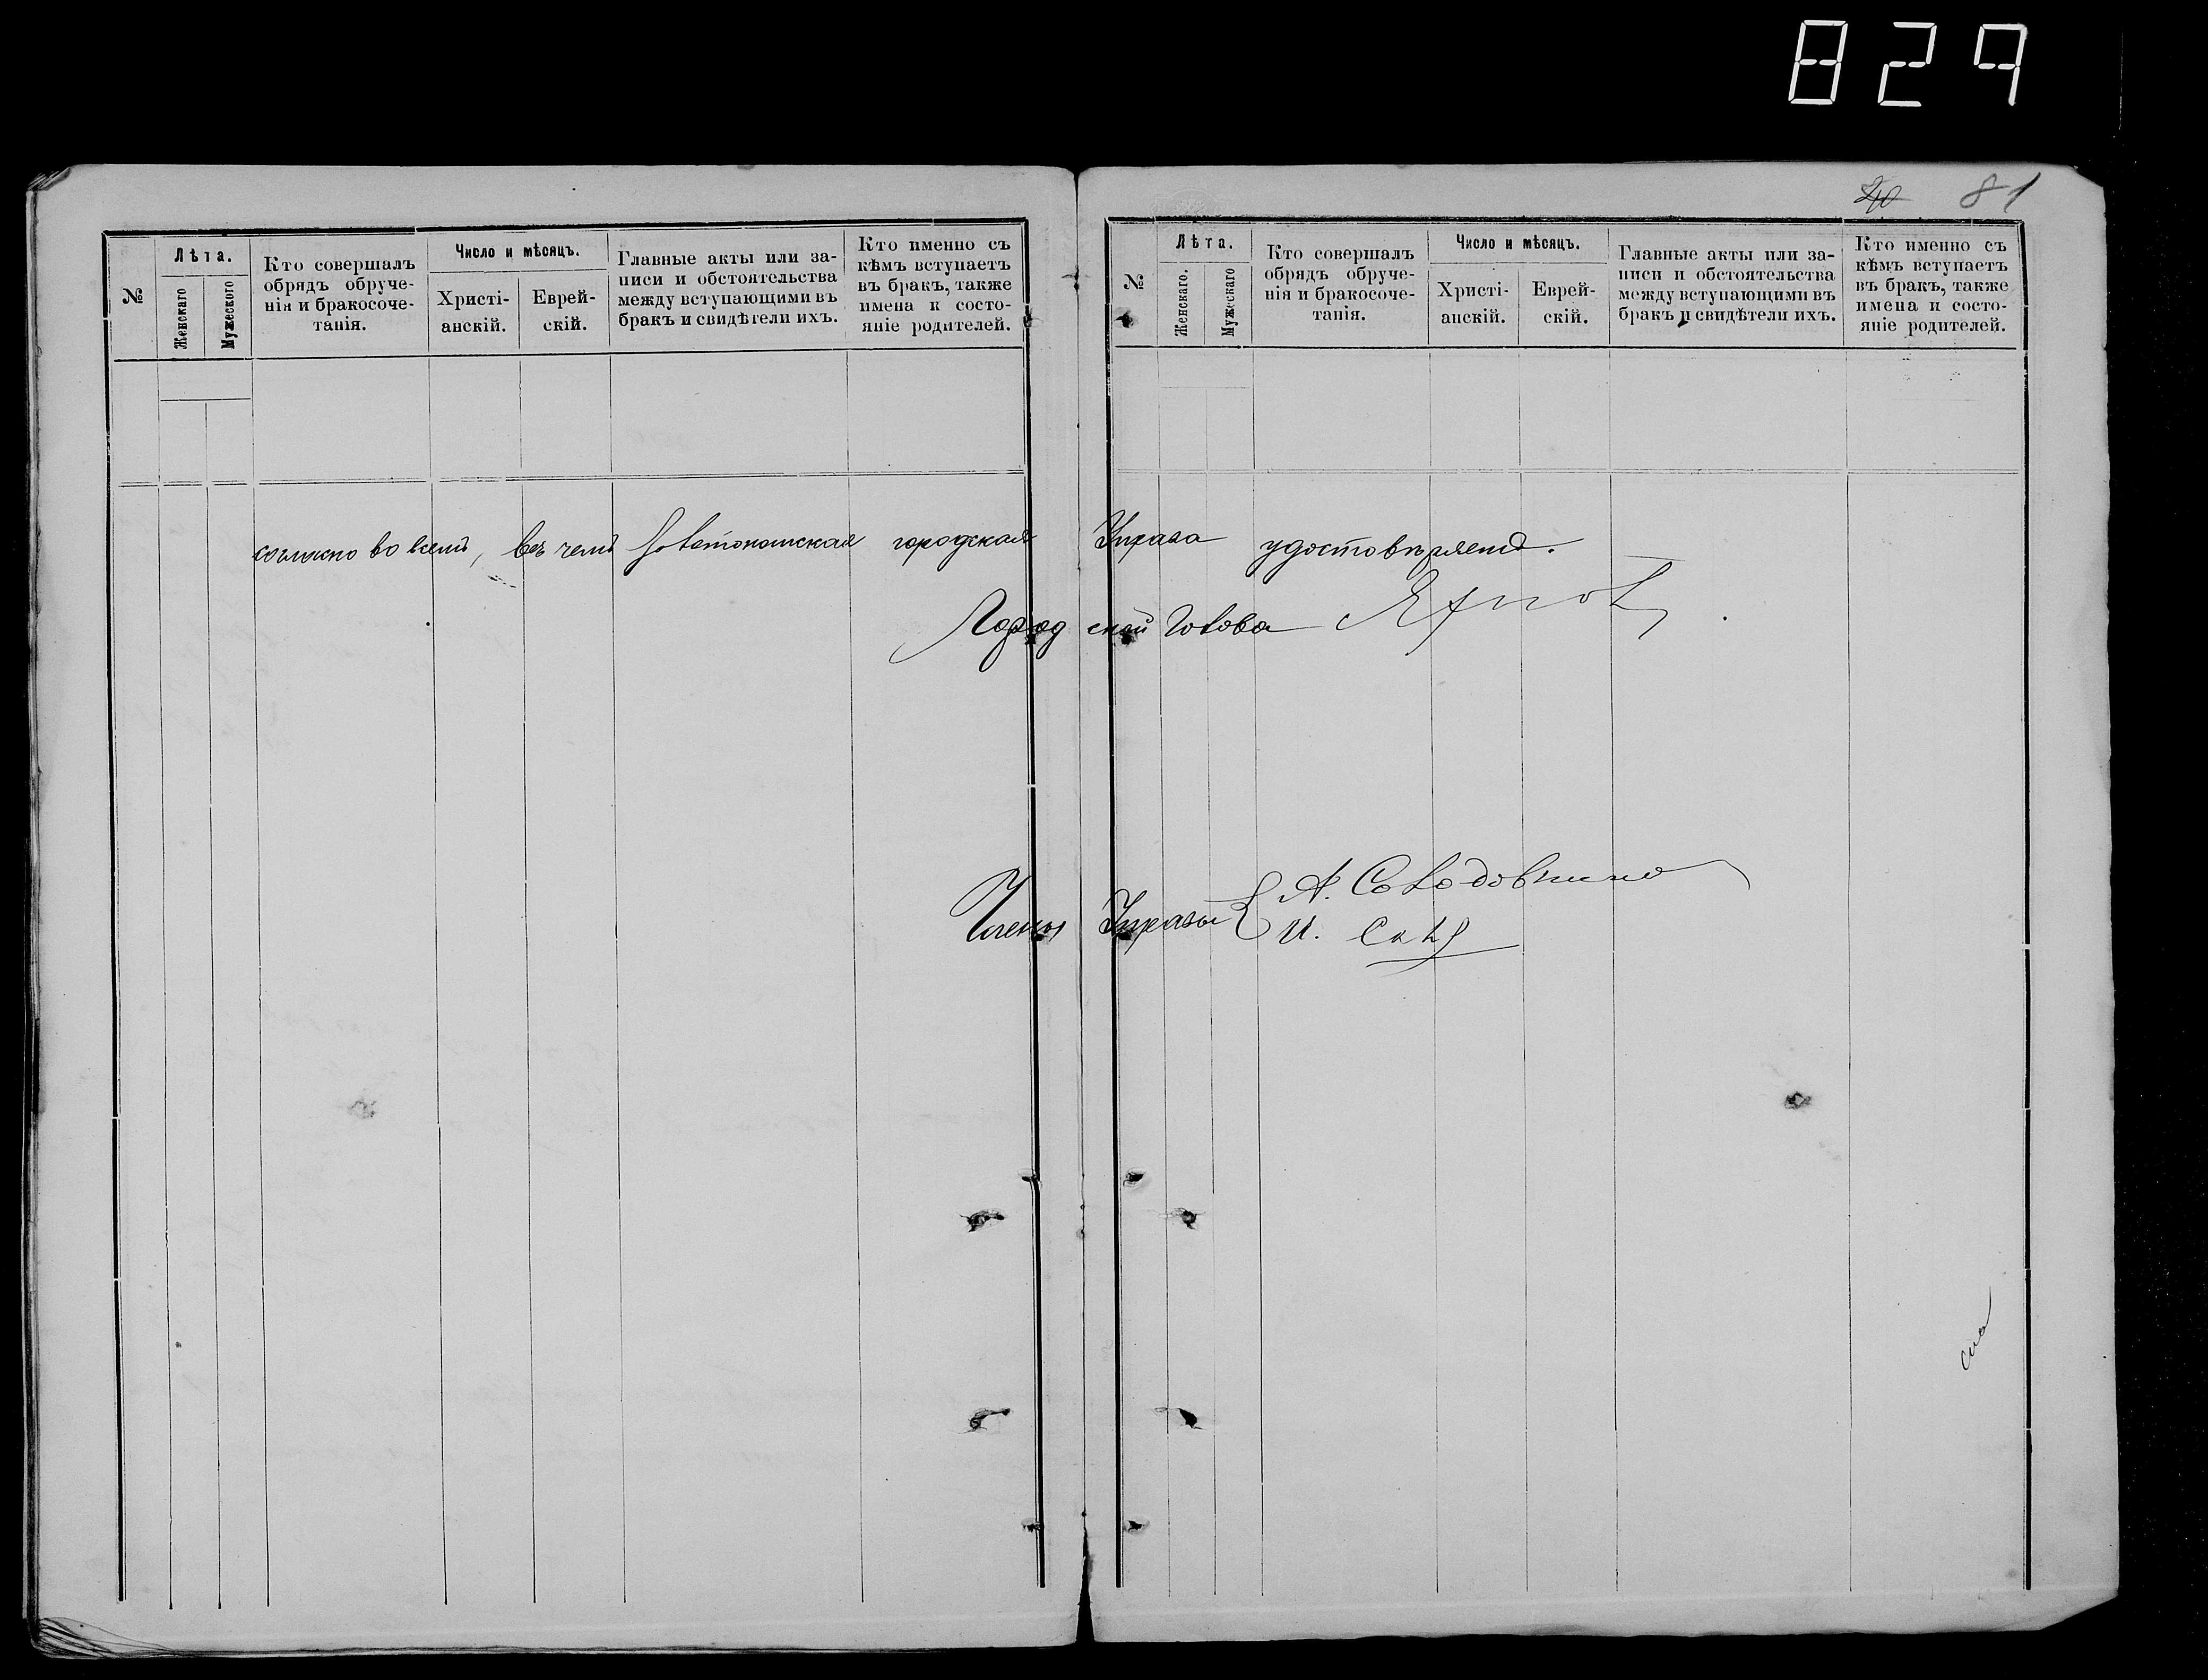 829
81
№
Лѣта.
Женскаго
Мужескаго
Кто совершалъ
обрядъ обруче-
нія и бракосоче-
танія.
Число и мѣсяцъ.
Христі-
анскій.
Еврей-
скій.
Главные акты или за-
писи и обстоятельства
между вступающими въ
бракъ и свидѣтели ихъ.
Кто именно съ
кѣмъ вступаетъ
въ бракъ, также
имена и состо-
яніе родителей.
№
Лѣта.
Женскаго.
Мужескаго
Кто совершалъ
обрядъ обруче-
нія и бракосоче-
танія.
Число и мѣсяцъ.
Христі-
анскій.
Еврей-
скій.
Главные акты или за-
писи и обстоятельства
между вступающими въ
бракъ и свидѣтели ихъ.
Кто именно съ
кѣмъ вступаетъ
въ бракъ, также
имена и состо-
яніе родителей.
во всемъ, въ чемъ Золотоношская городская Управа удостовѣряетъ.
Городской Голова
Члены Управы А.
И.